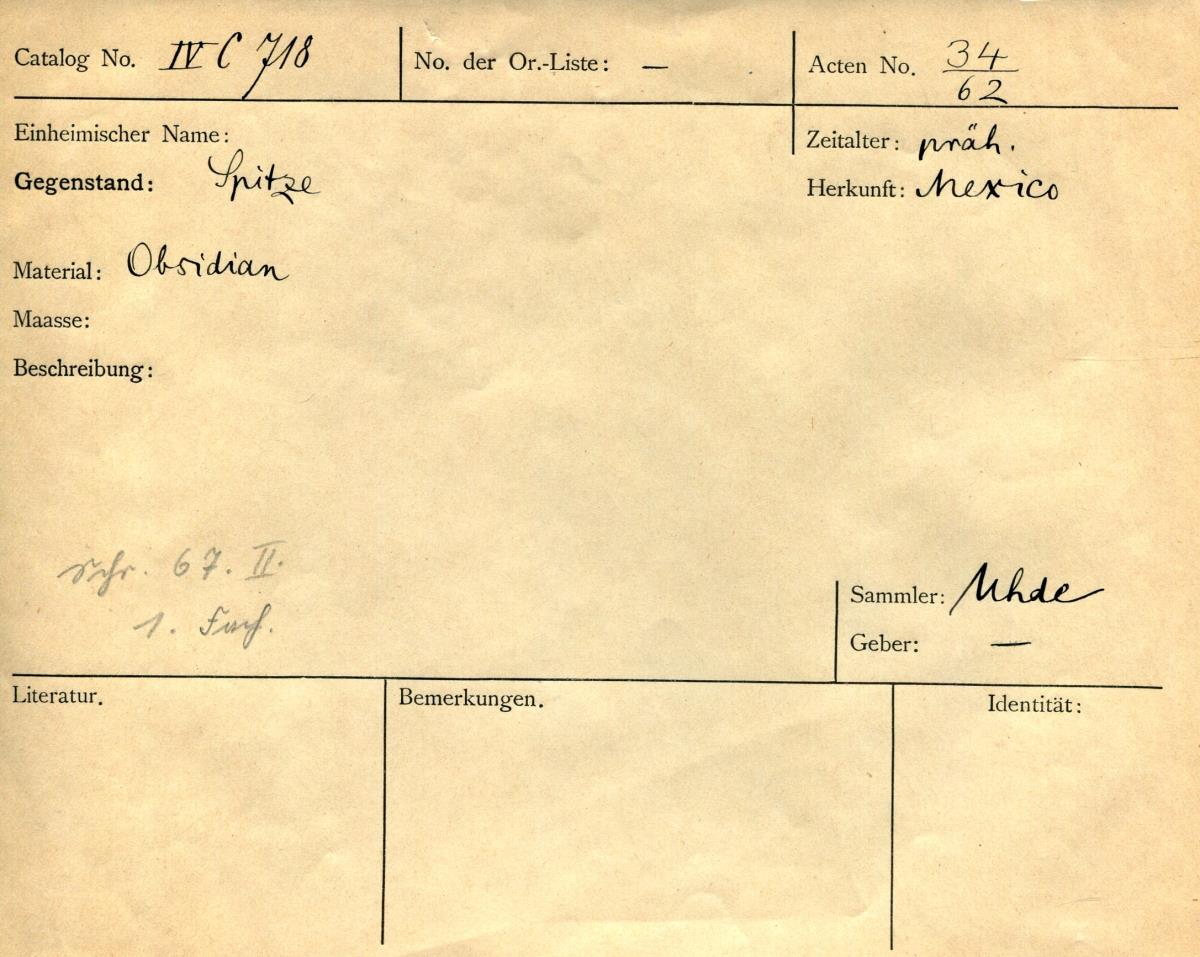 Catalog No. IV C 718
No. der Or.-Liste: —
Acten No. 34/62
Einheimischer Name:
Zeitalter: präh.
Gegenstand: Spitze
Herkunft: Mexico
Material: Obsidian
Maasse:
Beschreibung:
Schr. 67. II.
1. Fach.
Sammler: Uhde
Geber: —
Literatur.
Bemerkungen.
Identität: